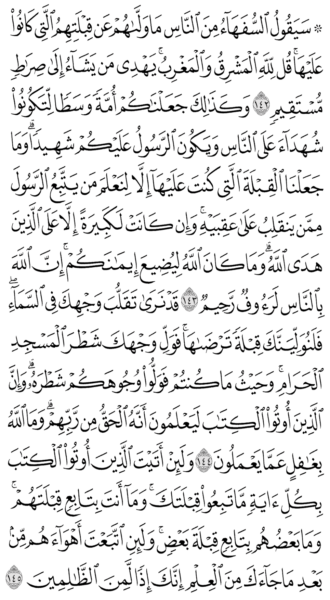 ۞ سَيَقُولُ ٱلسُّفَهَآءُ مِنَ ٱلنَّاسِ مَا وَلَّىٰهُمْ عَن قِبْلَتِهِمُ ٱلَّتِى كَانُوا۟
عَلَيْهَا ۚ قُل لِّلَّهِ ٱلْمَشْرِقُ وَٱلْمَغْرِبُ ۚ يَهْدِى مَن يَشَآءُ إِلَىٰ صِرَٰطٍ
مُّسْتَقِيمٍ ١٤٢ وَكَذَٰلِكَ جَعَلْنَـٰكُمْ أُمَّةً وَسَطًا لِّتَكُونُوا۟
شُهَدَآءَ عَلَى ٱلنَّاسِ وَيَكُونَ ٱلرَّسُولُ عَلَيْكُمْ شَهِيدًا ۗ وَمَا
جَعَلْنَا ٱلْقِبْلَةَ ٱلَّتِى كُنتَ عَلَيْهَآ إِلَّا لِنَعْلَمَ مَن يَتَّبِعُ ٱلرَّسُولَ
مِمَّن يَنقَلِبُ عَلَىٰ عَقِبَيْهِ ۚ وَإِن كَانَتْ لَكَبِيرَةً إِلَّا عَلَى ٱلَّذِينَ
هَدَى ٱللَّهُ ۗ وَمَا كَانَ ٱللَّهُ لِيُضِيعَ إِيمَـٰنَكُمْ ۚ إِنَّ ٱللَّهَ
بِٱلنَّاسِ لَرَءُوفٌ رَّحِيمٌ ١٤٣ قَدْ نَرَىٰ تَقَلُّبَ وَجْهِكَ فِى ٱلسَّمَآءِ ۖ
فَلَنُوَلِّيَنَّكَ قِبْلَةً تَرْضَىٰهَا ۚ فَوَلِّ وَجْهَكَ شَطْرَ ٱلْمَسْجِدِ
ٱلْحَرَامِ ۚ وَحَيْثُ مَا كُنتُمْ فَوَلُّوا۟ وُجُوهَكُمْ شَطْرَهُۥ ۗ وَإِنَّ
ٱلَّذِينَ أُوتُوا۟ ٱلْكِتَـٰبَ لَيَعْلَمُونَ أَنَّهُ ٱلْحَقُّ مِن رَّبِّهِمْ ۗ وَمَا ٱللَّهُ
بِغَـٰفِلٍ عَمَّا يَعْمَلُونَ ١٤٤ وَلَئِنْ أَتَيْتَ ٱلَّذِينَ أُوتُوا۟ ٱلْكِتَـٰبَ
بِكُلِّ ءَايَةٍ مَّا تَبِعُوا۟ قِبْلَتَكَ ۚ وَمَآ أَنتَ بِتَابِعٍ قِبْلَتَهُمْ ۚ
وَمَا بَعْضُهُم بِتَابِعٍ قِبْلَةَ بَعْضٍ ۚ وَلَئِنِ ٱتَّبَعْتَ أَهْوَآءَهُم مِّنۢ
بَعْدِ مَا جَآءَكَ مِنَ ٱلْعِلْمِ ۙ إِنَّكَ إِذًا لَّمِنَ ٱلظَّـٰلِمِينَ ١٤٥